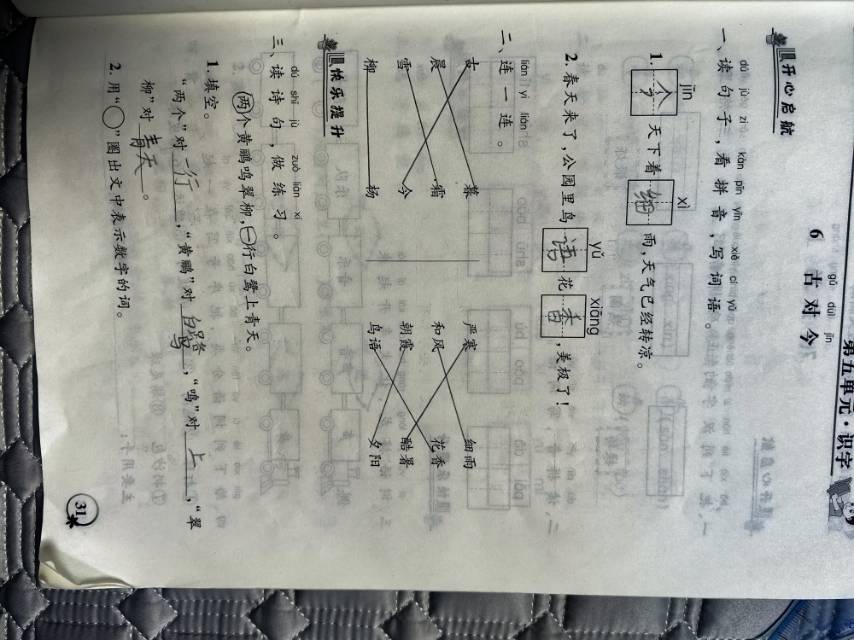 第五单元·识字
gǔ duì jīn
6 古对今
开心启航
dú jù zi kàn pīn yīn xiě cí yǔ
一、读句子,看拼音,写词语。
jīn xì
1. 今天下着细雨,天气已经转凉。
yǔ xiāng
2. 春天来了,公园里鸟语花香,美极了!
lián yi lián
二、连一连。
古 暮 严寒 细雨
晨 霜 和风 花香
雪 今 朝霞 酷暑
柳 杨 鸟语 夕阳
快乐提升
dú shī jù zuò liàn xí
三、读诗句,做练习。
两个黄鹂鸣翠柳,一行白鹭上青天。
1. 填空。
“两个”对一行,“黄鹂”对白鹭,“鸣”对上,“翠
柳”对青天。
2. 用“○”圈出文中表示数字的词。
31